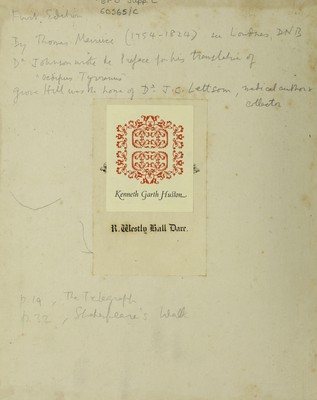 First Edition
EPB Supp C
60565/C
By Thomas Maurice (1754-1824) see Lowndes, DNB
Dr Johnson wrote the Preface for his translation of
'Oedipus Tyrannus'
Grove Hill was the home of Dr J.C. Lettsom, medical author &
collector
Kenneth Garth Hulton
R. Westly Hall Dare.
p.19, The Telegraph
p.32, Shakespeare's Walk